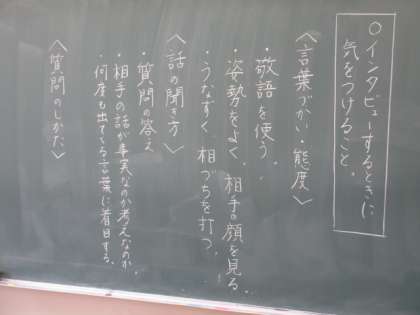 ○インタビューするときに
気をつけること。
〈言葉づかい・態度〉
・敬語を使う。
・姿勢をよく、相手の顔を見る。
・うなずく、相づちを打つ。
〈話の聞き方〉
・質問の答え
・相手の話が事実なのか考えなのか。
・何度も出てくる言葉に着目する。
〈質問のしかた〉